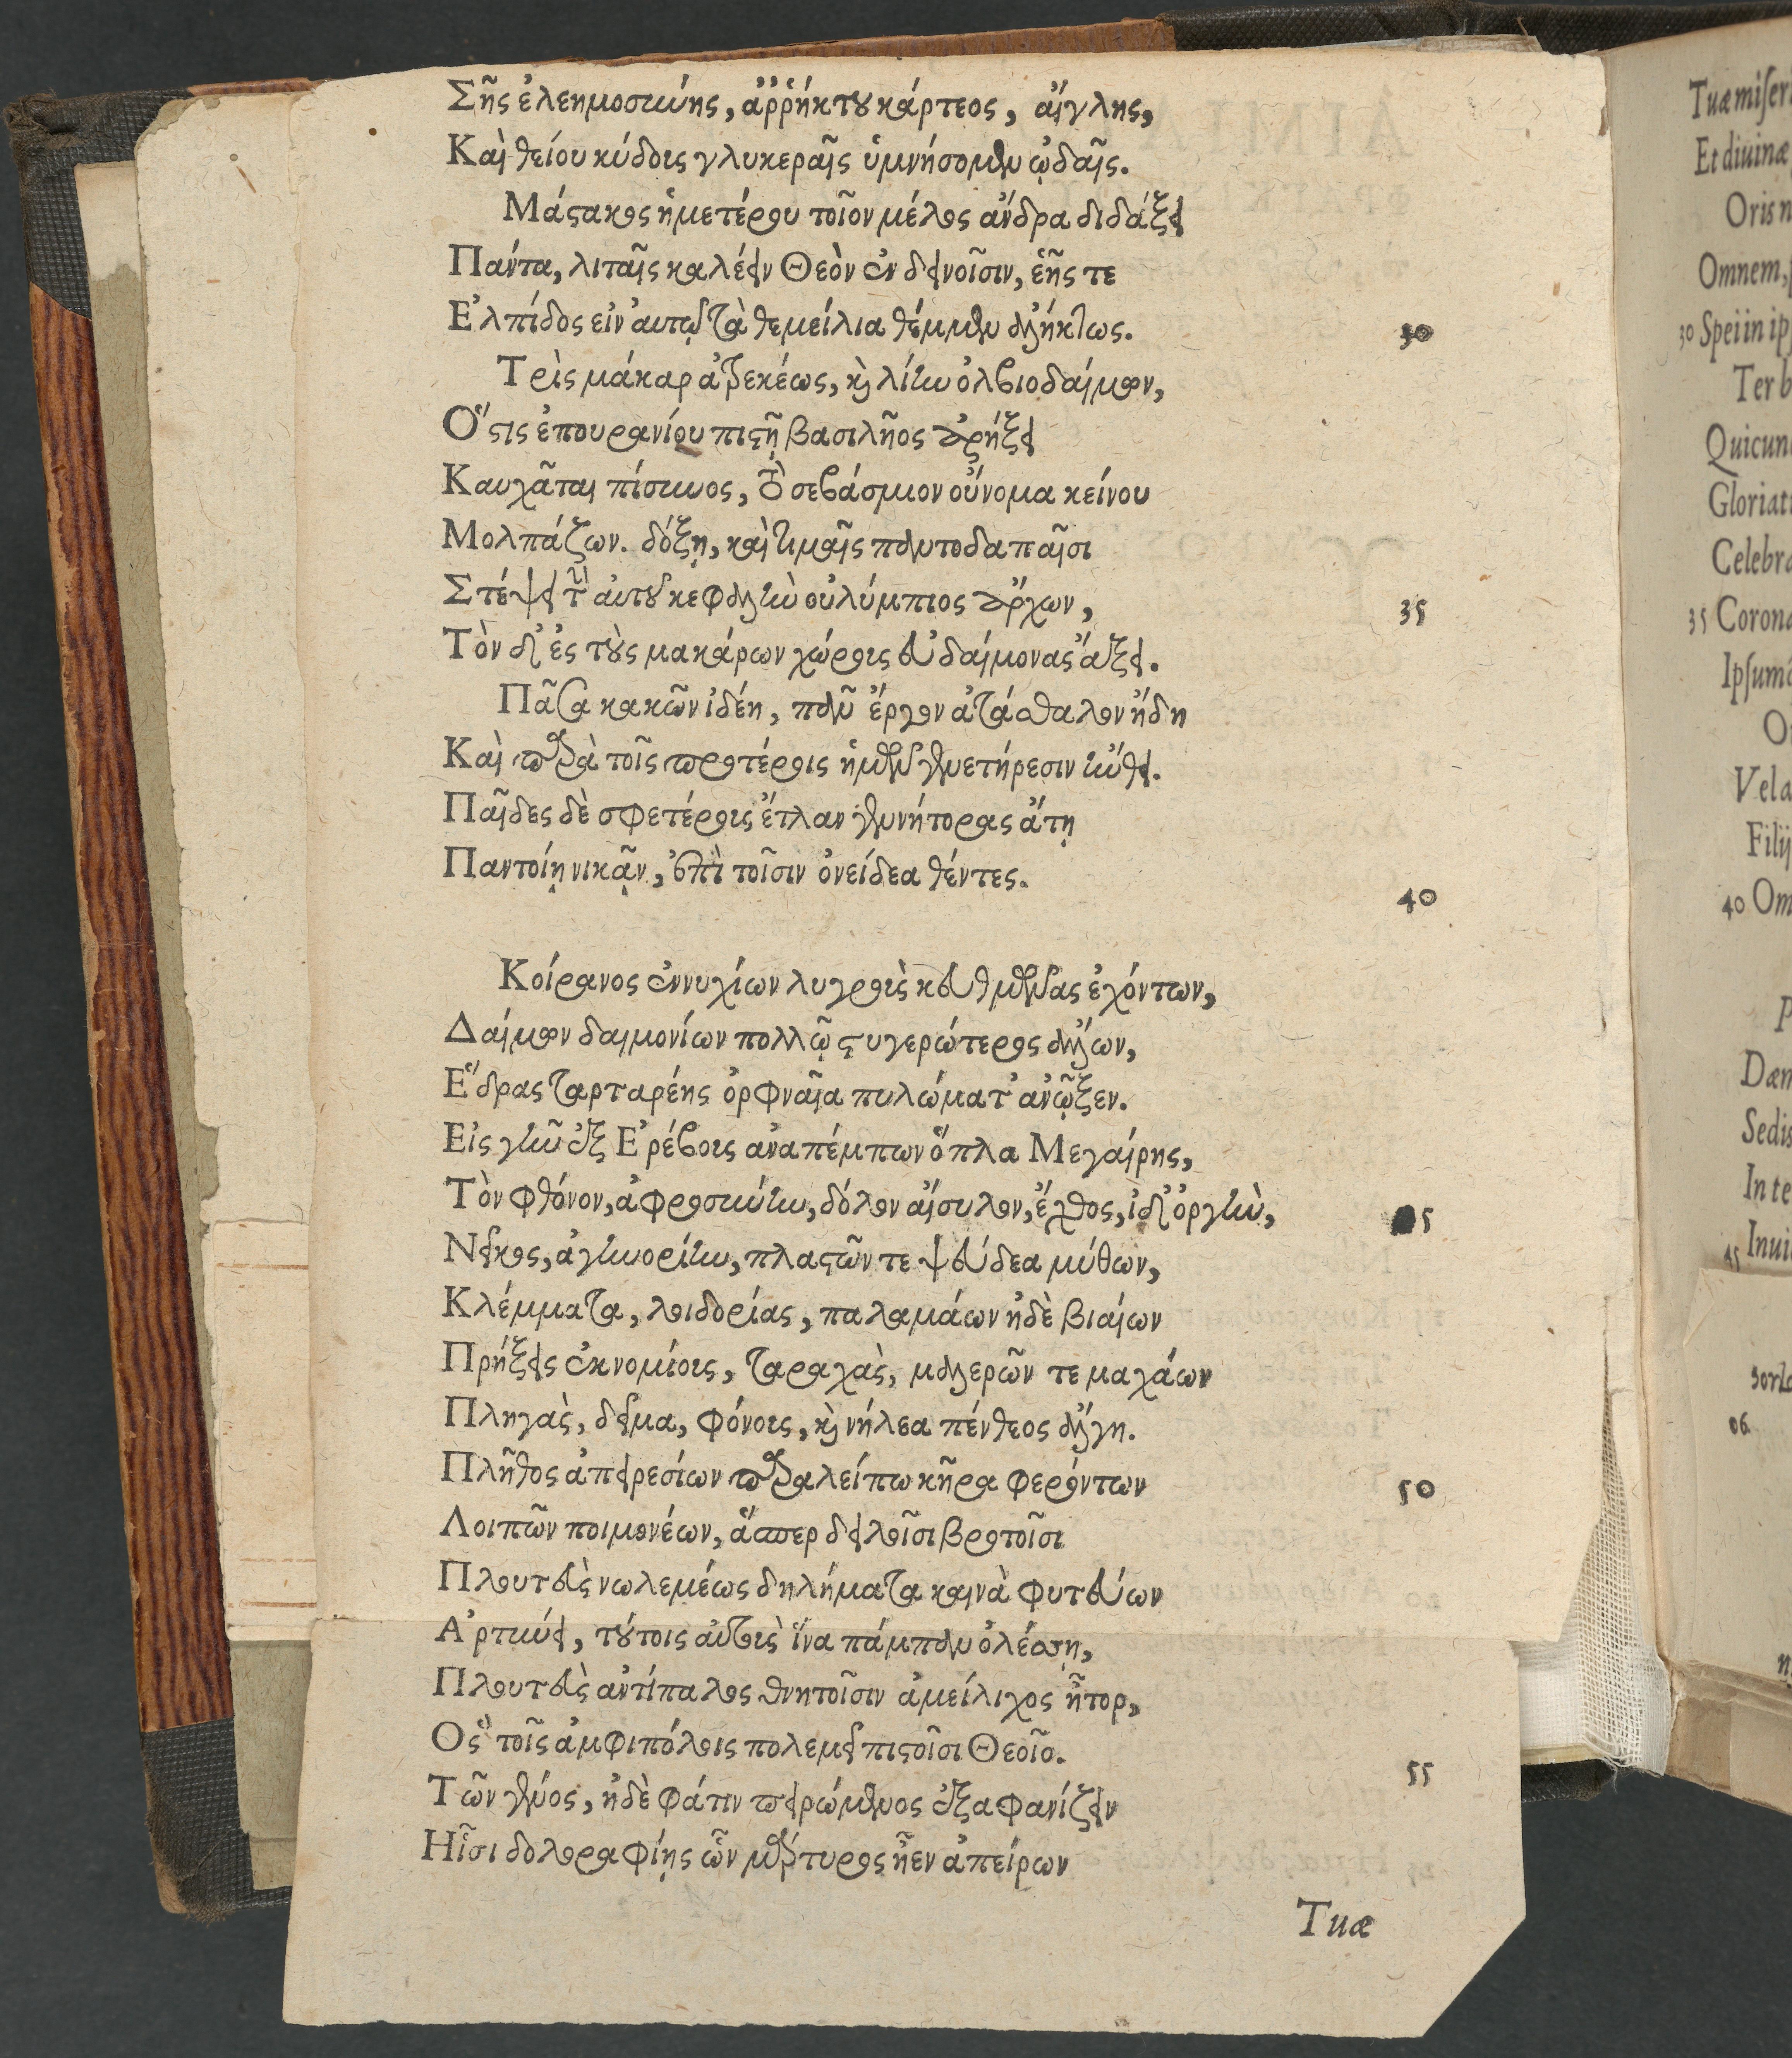 Σῆς ἐλεημοσύνης, ἀῤῥήκτου κάρτεος, αἴγλης,
Καὶ θείου κύδους γλυκεραῖς ὑμνήσομεν ᾠδαῖς.
Μάστακος ἡμετέρου τοῖον μέλος ἄνδρα διδάξει
Πάντα, λιταῖς καλέειν Θεὸν ἐν δεινοῖσιν, ἑῆς τε
Ἐλπίδος εἰν αὐτῷ τὰ θεμείλια θέμμεν ἀλήκτως.
30
Τρὶς μάκαρ ἀτρεκέως, καὶ λίην ὀλβιοδαίμων,
Ὅστις ἐπουρανίου πιστῇ βασιλῆος ἀρήξει
Καυχᾶται πίσυνος, τὸ σεβάσμιον οὔνομα κείνου
Μολπάζων. δόξῃ, καὶ τιμαῖς παντοδαπαῖσι
Στέψει τὴν αὐτοῦ κεφαλὴν οὐλύμπιος ἄρχων,
35
Τὸν δ' ἐς τοὺς μακάρων χώρους εὐδαίμονας ἄξει.
Πᾶσα κακῶν ἰδέη, πᾶν ἔργον ἀτάσθαλον ἤδη
Καὶ παρὰ τοῖς προτέροις ἡμῶν γενετήρεσιν ἤνθει.
Παῖδες δὲ σφετέρους ἔτλαν γεννήτορας ἄτῃ
Παντοίῃ νικᾷν, ἐπὶ τοῖσιν ὀνείδεα θέντες.
40
Κοίρανος ἐννυχίων λυγροὺς κευθμῶνας ἐχόντων,
Δαίμων δαιμονίων πολλῷ στυγερώτερος ἄλλων,
Ἕδρας ταρταρέης ὀρφναῖα πυλώματ' ἀνῷξεν.
Εἰς γῆν ἐξ Ἐρέβους ἀναπέμπων ὅπλα Μεγαίρης,
Τὸν φθόνον, ἀφροσύνην, δόλον αἴσυλον, ἔχθος, ἰδ' ὀργὴν,
5
Νεῖκος, ἀγηνορίην, πλαστῶν τε ψεύδεα μύθων,
Κλέμματα, λοιδορίας, παλαμάων ἠδὲ βιαίων
Πρήξεις ἐκνομίους, ταραχὰς, μαλερῶν τε μαχάων
Πληγὰς, δεῖμα, φόνους, καὶ νήλεα πένθεος ἄλγη.
Πλῆθος ἀπειρεσίων παραλείπω κῆρα φερόντων
50
Λοιπῶν ποιμονέων, ἅπερ δειλοῖσι βροτοῖσι
Πλουτεὺς νωλεμέως δηλήματα καινὰ φυτεύων
Ἀρτύνει, τούτοις αὐτοὺς ἵνα πάμπαν ὀλέσσῃ,
Πλουτεὺς ἀντίπαλος θνητοῖσιν ἀμείλιχος ἦτορ,
Ὃς τοῖς ἀμφιπόλοις πολεμεῖ πιστοῖσι Θεοῖο.
55
Τῶν γένος, ἠδὲ φάτιν πειρώμενος ἐξαφανίζειν
Ἧισι δολοραφίῃς ὧν μάρτυρος ἦεν ἀπείρων
Tuæ
Tuæ
Et diuinæ
Oris
Omnem,
30 Spei in
Ter
Celebra
35 Corona
40
Sedis
45
50